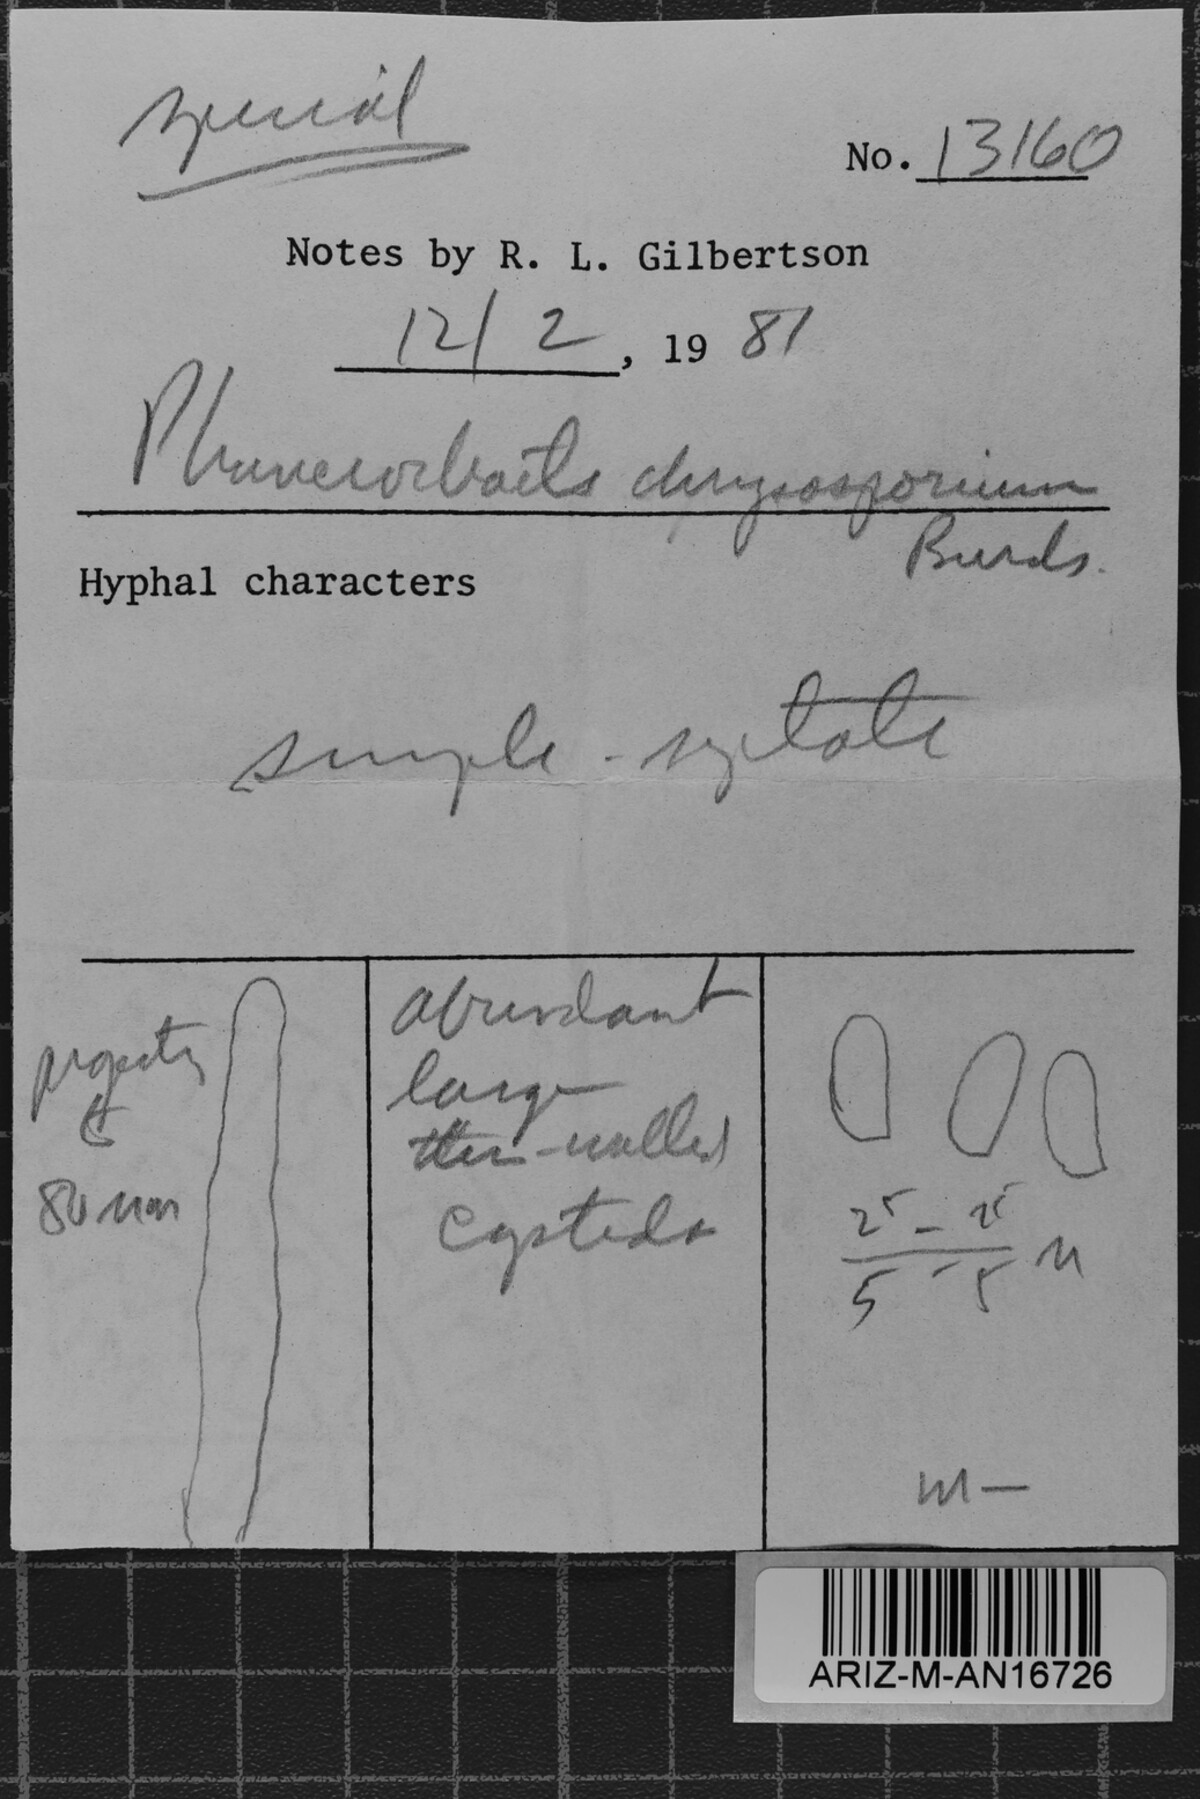 special
No. 13160
Notes by R. L. Gilbertson
12/2, 1981
Phanerochaete chrysosporium
Burds.
Hyphal characters
simple-septate
projecting
to
80 um
abundant
large
thin-walled
cystidia
25 - 25
5 - 5 u
M—
ARIZ-M-AN16726